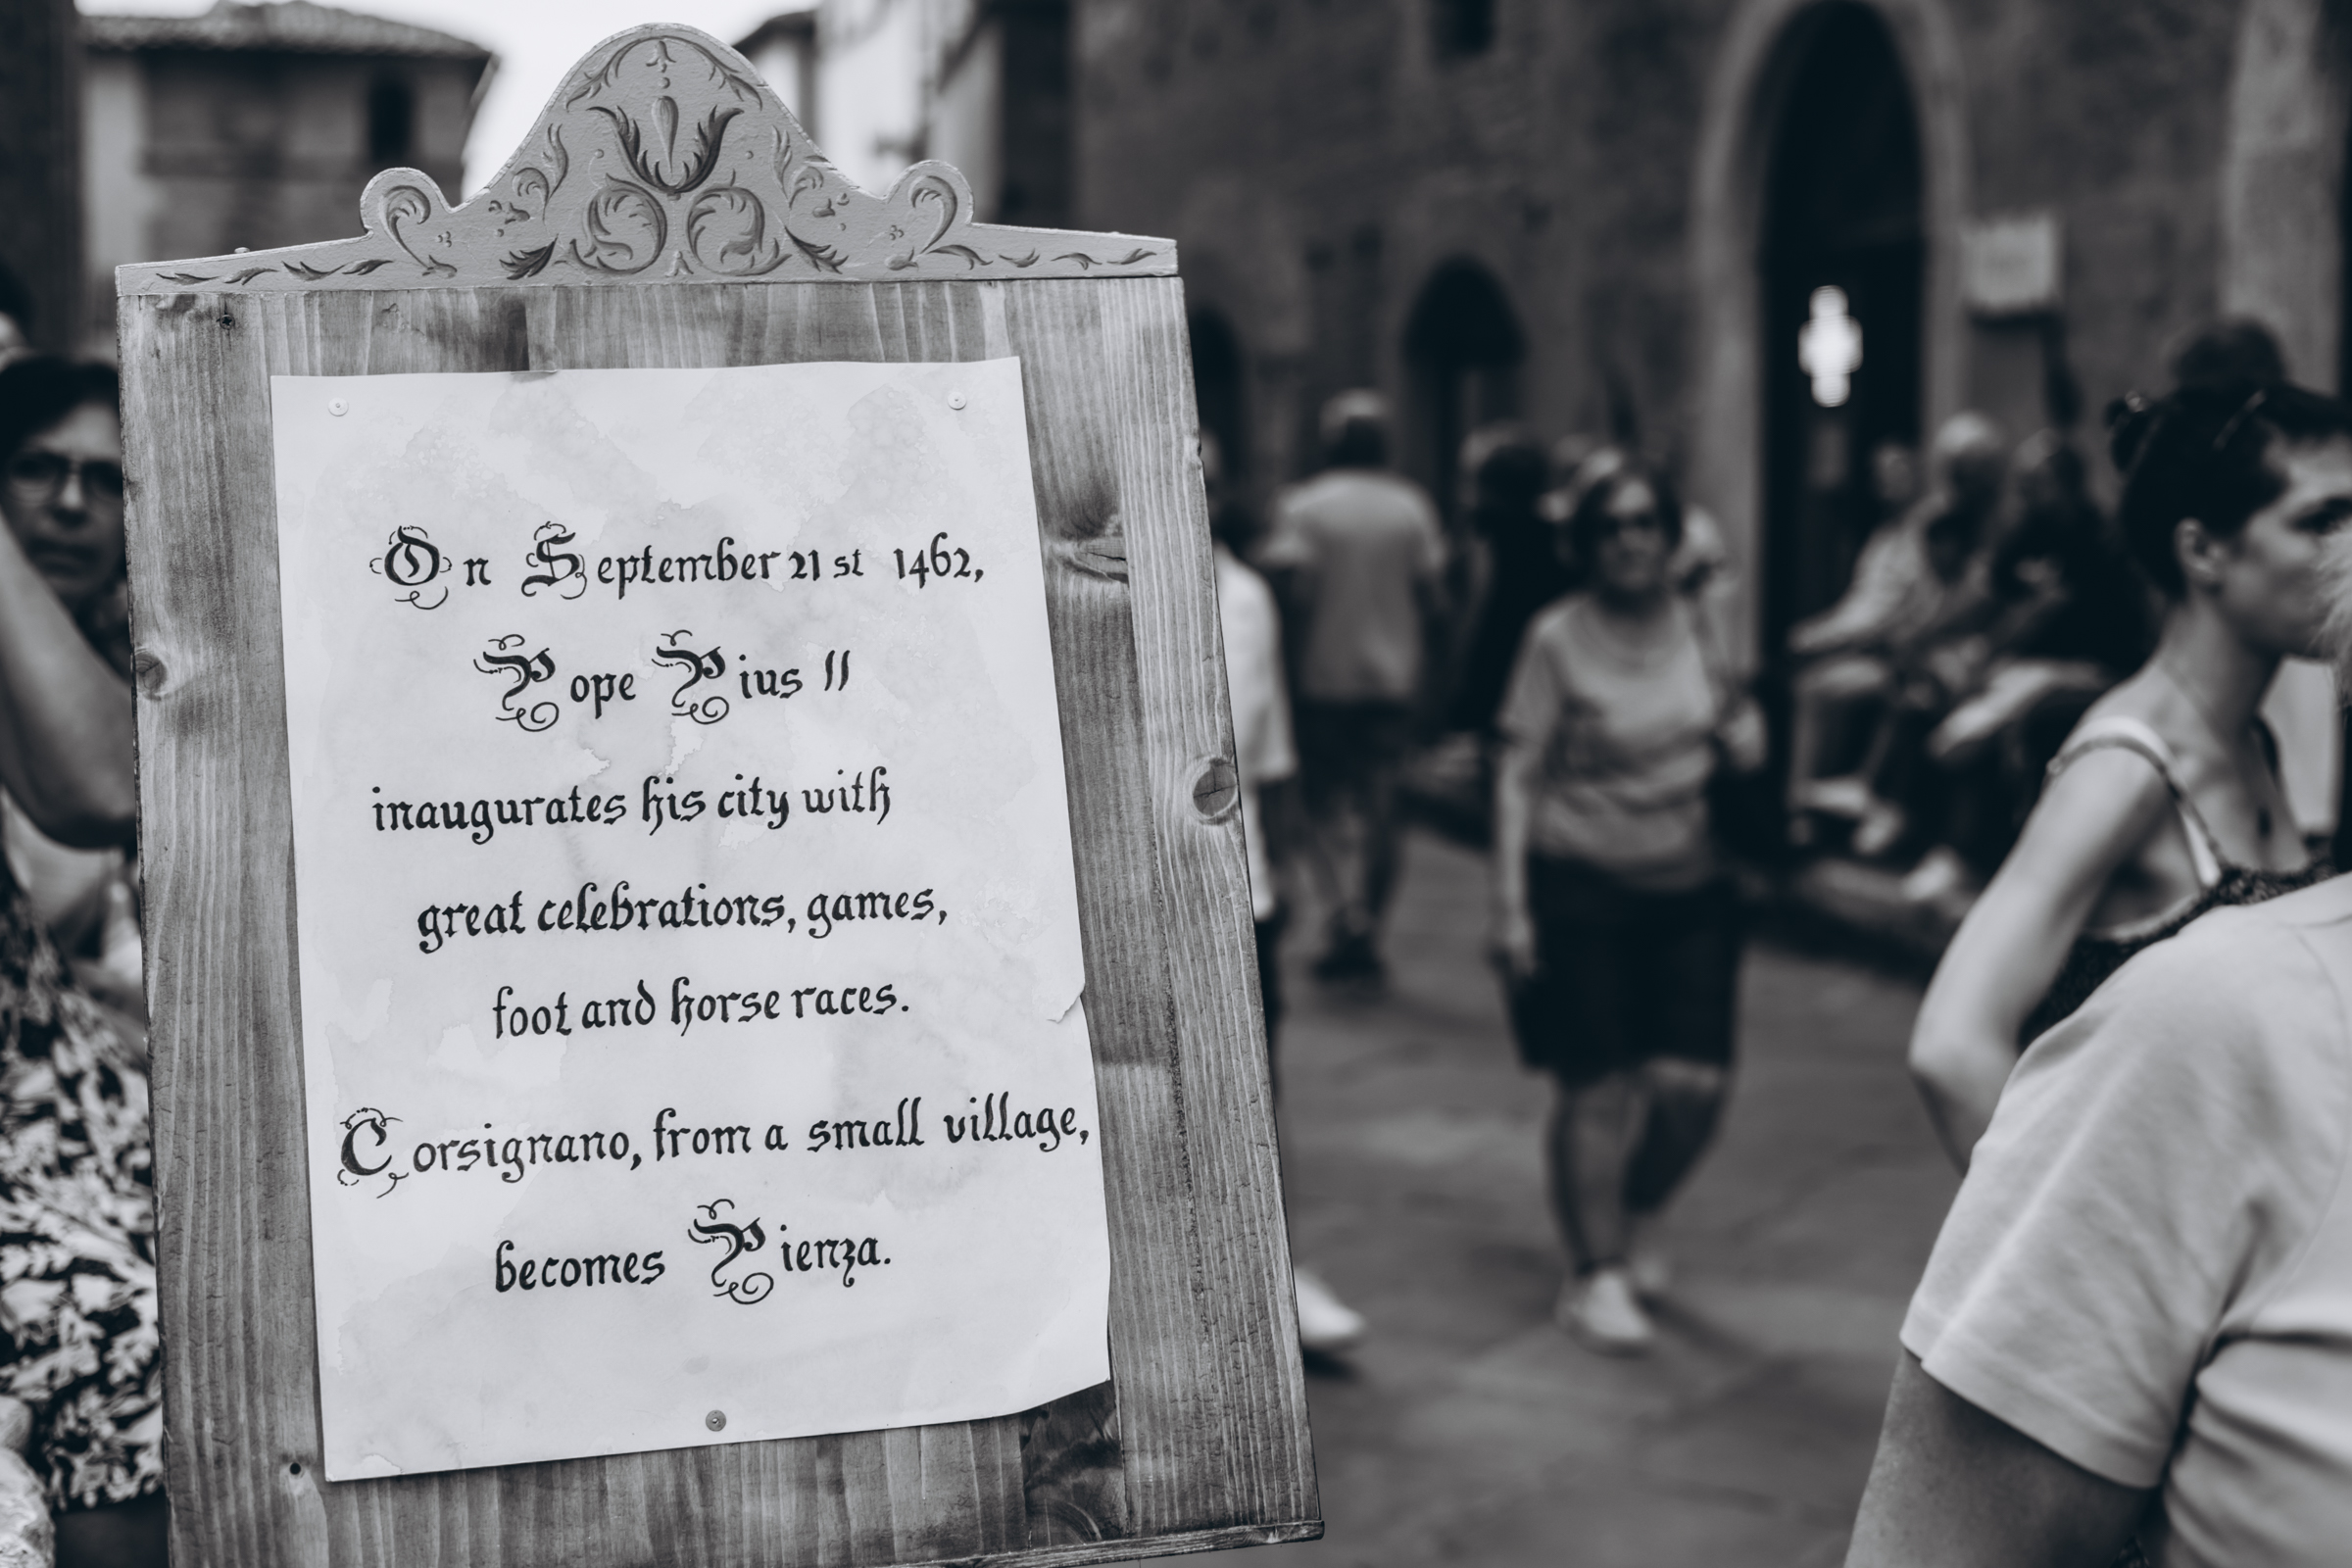 On September 21 st 1462,
Pope Pius II
inaugurates his city with
great celebrations, games,
foot and horse races.
Corsignano, from a small village,
becomes Pienza.